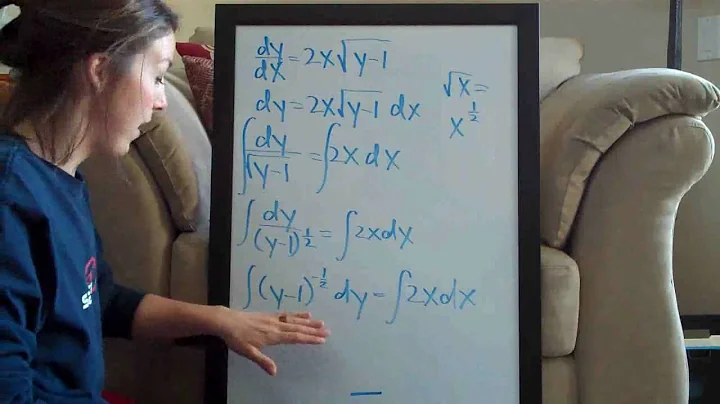 dy/dx = 2x√(y-1)
dy = 2x√(y-1) dx
∫ dy/√(y-1) = ∫2x dx
∫ dy/(y-1)^(1/2) = ∫2xdx
∫(y-1)^(-1/2) dy = ∫2xdx
√x =
x^(1/2)